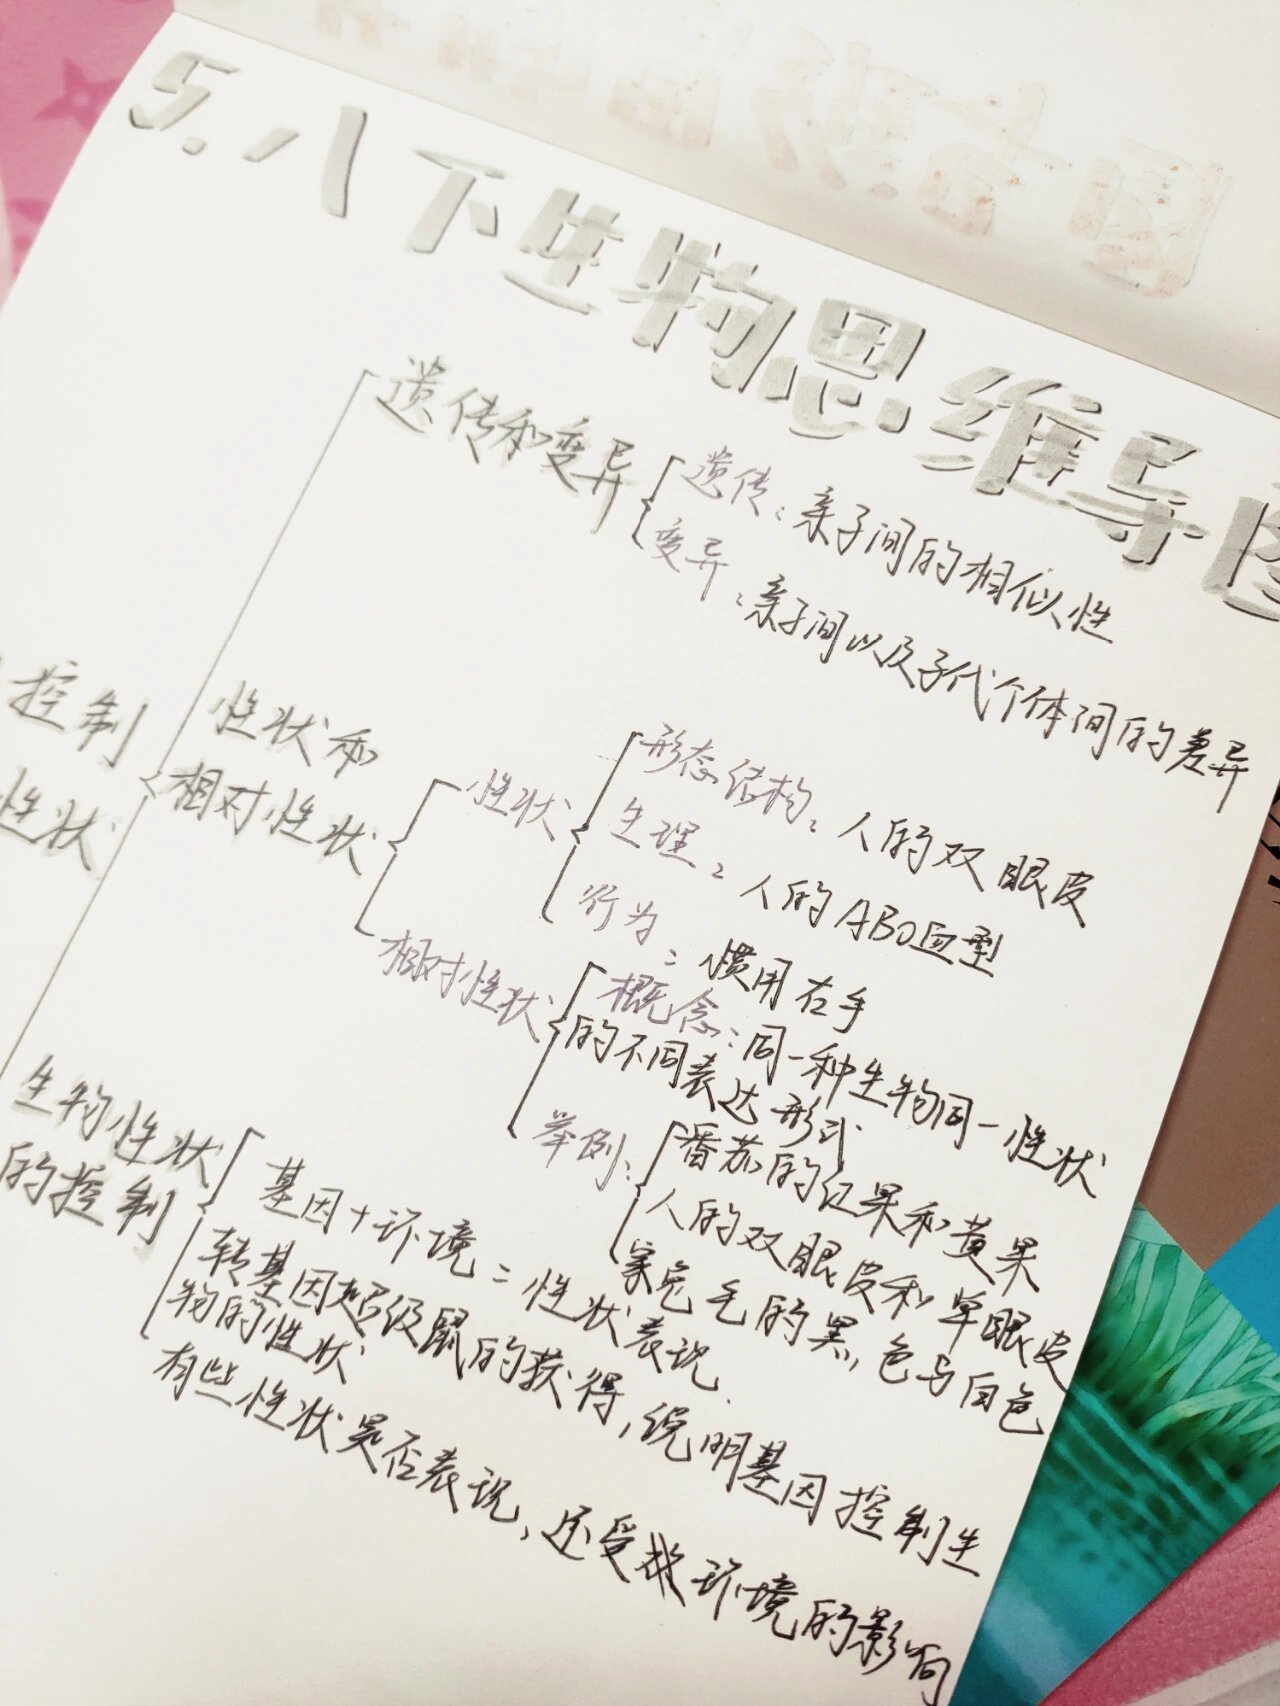 5.八下生物思维导图
遗传和变异
遗传:亲子间的相似性
变异:亲子间以及子代个体间的差异
控制
性状
性状和
相对性状
性状
形态结构:人的双眼皮
生理:人的ABO血型
行为:惯用右手
相对性状
概念:同一种生物同一性状
的不同表达形式
举例:
番茄的红果和黄果
人的双眼皮和单眼皮
家兔毛的黑色与白色
生物性状
的控制
基因+环境=性状表现.
转基因超级鼠的获得,说明基因控制生
物的性状
有些性状是否表现,还受环境的影响